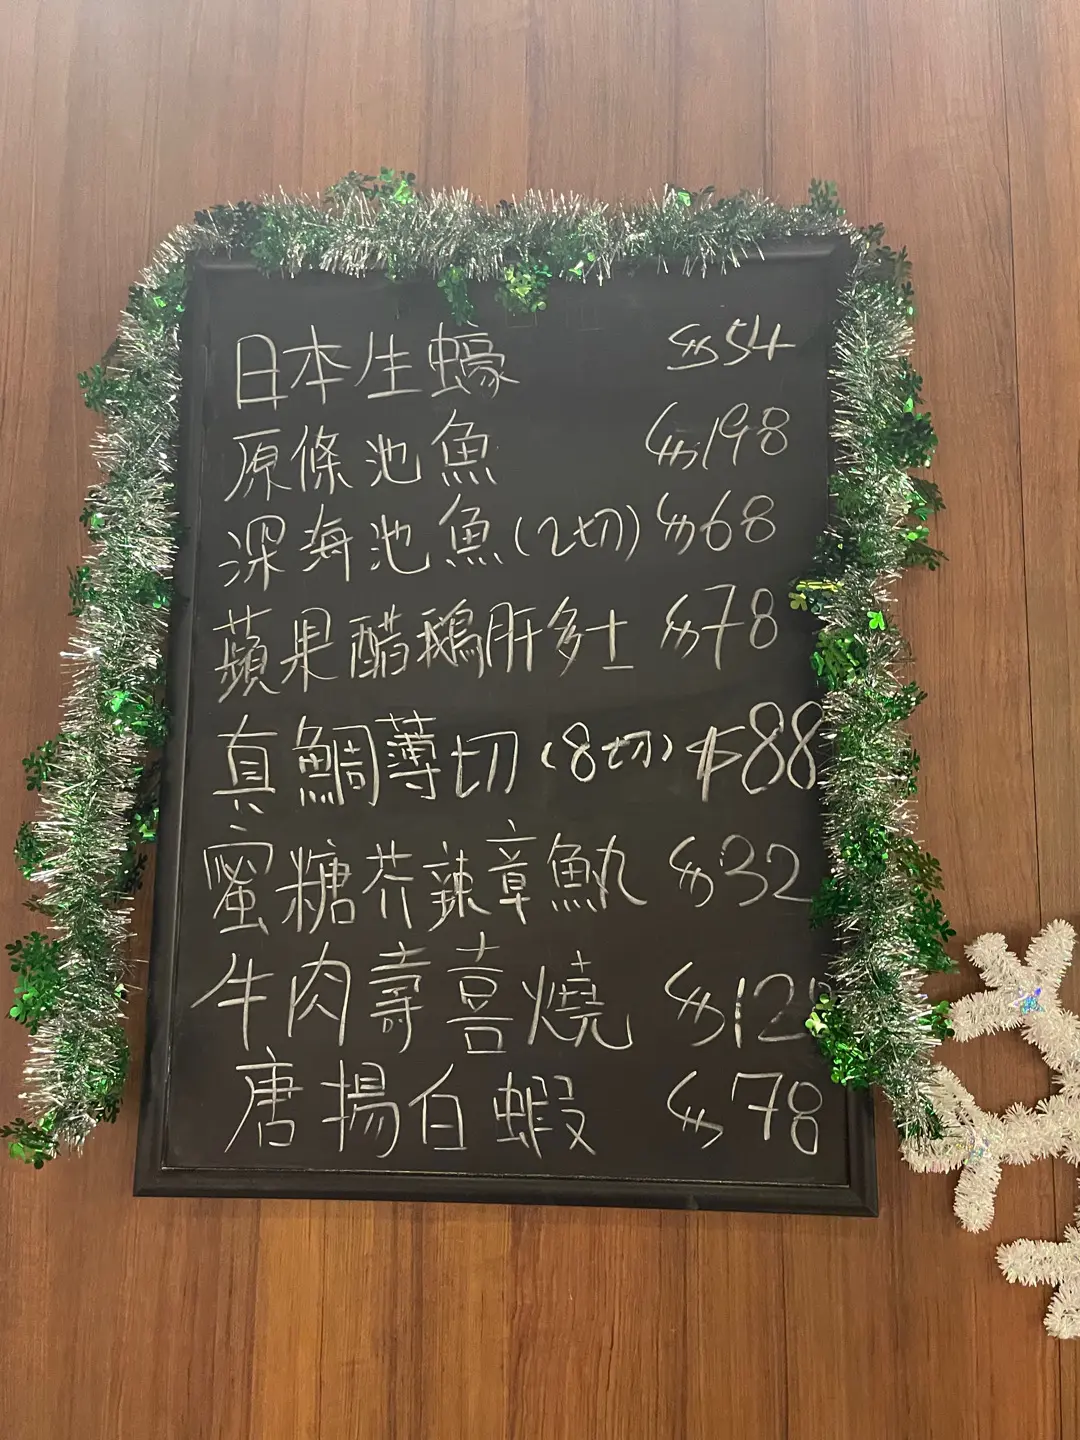 日本生蠔 $54
原條池魚 $198
深海池魚(2切) $68
蘋果醋鵝肝多士 $78
真鯛薄切(8切) $88
蜜糖芥辣章魚丸 $32
牛肉壽喜燒
唐揚白蝦 $78